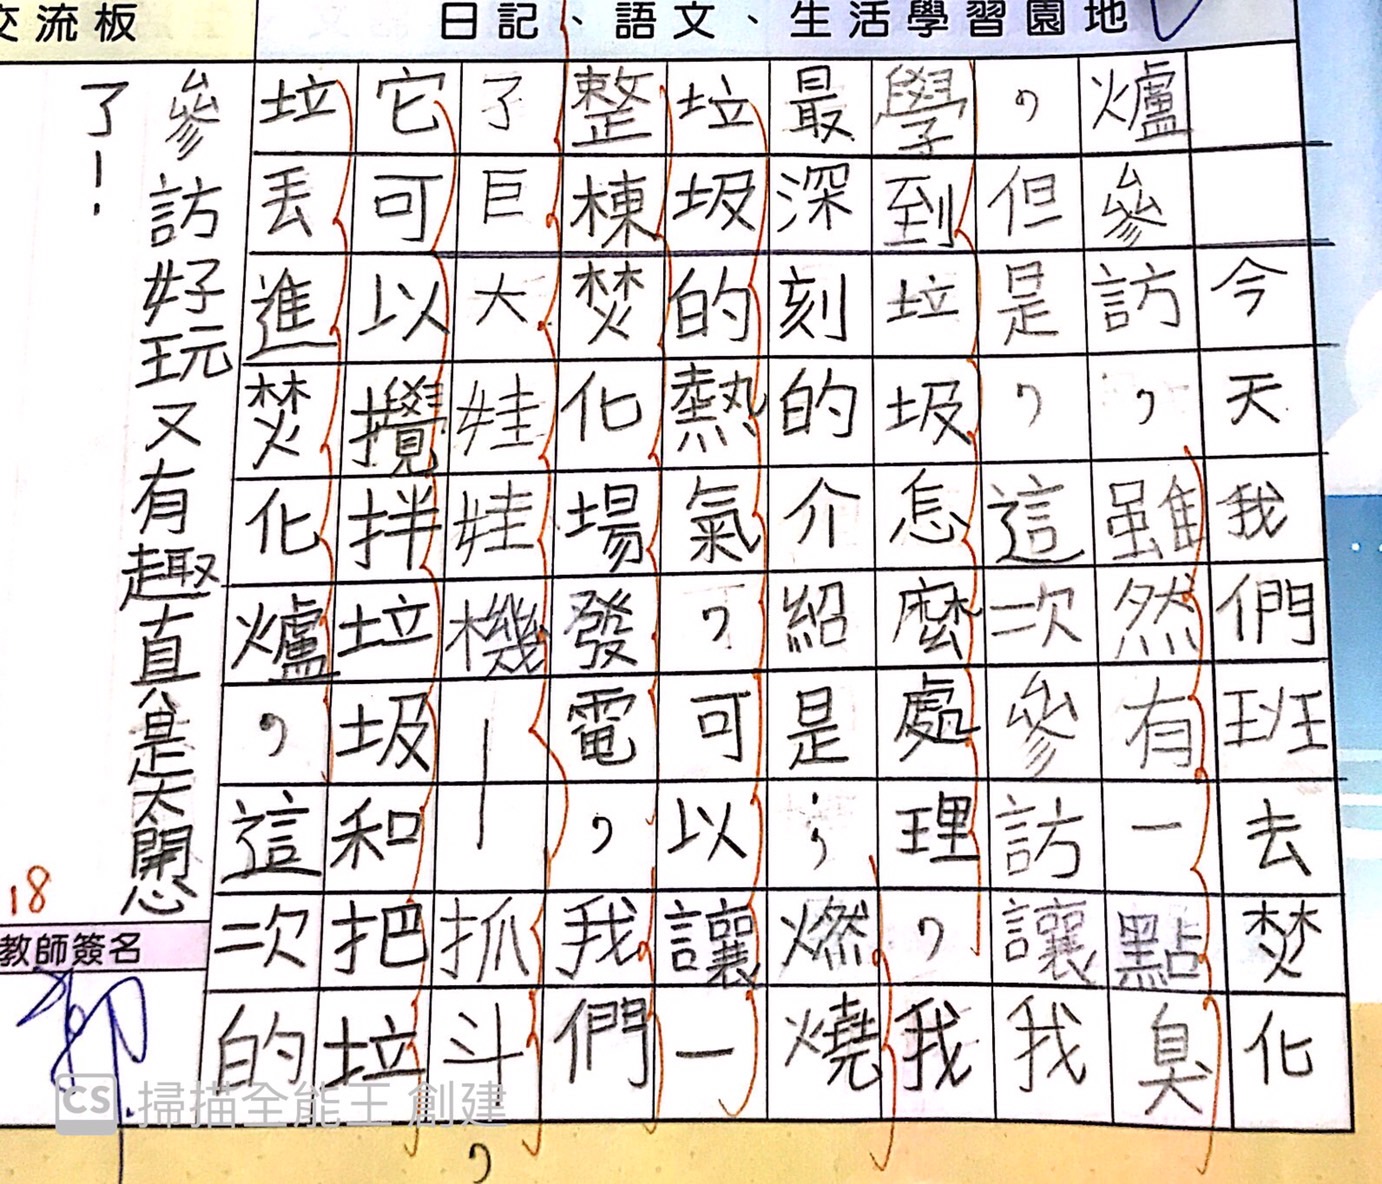 交流板
日記、語文、生活學習園地
今天我們班去焚化
爐參訪，雖然有一點臭
，但是，這次參訪讓我
學到垃圾怎麼處理，我
最深刻的介紹是：燃燒
垃圾的熱氣，可以讓一
整棟焚化場發電，我們
了巨大娃娃機——抓斗，
它可以攪拌垃圾和把垃
垃丟進焚化爐，這次的
參訪好玩又有趣直是太開心
了！
18
教師簽名
CS 掃描全能王 創建